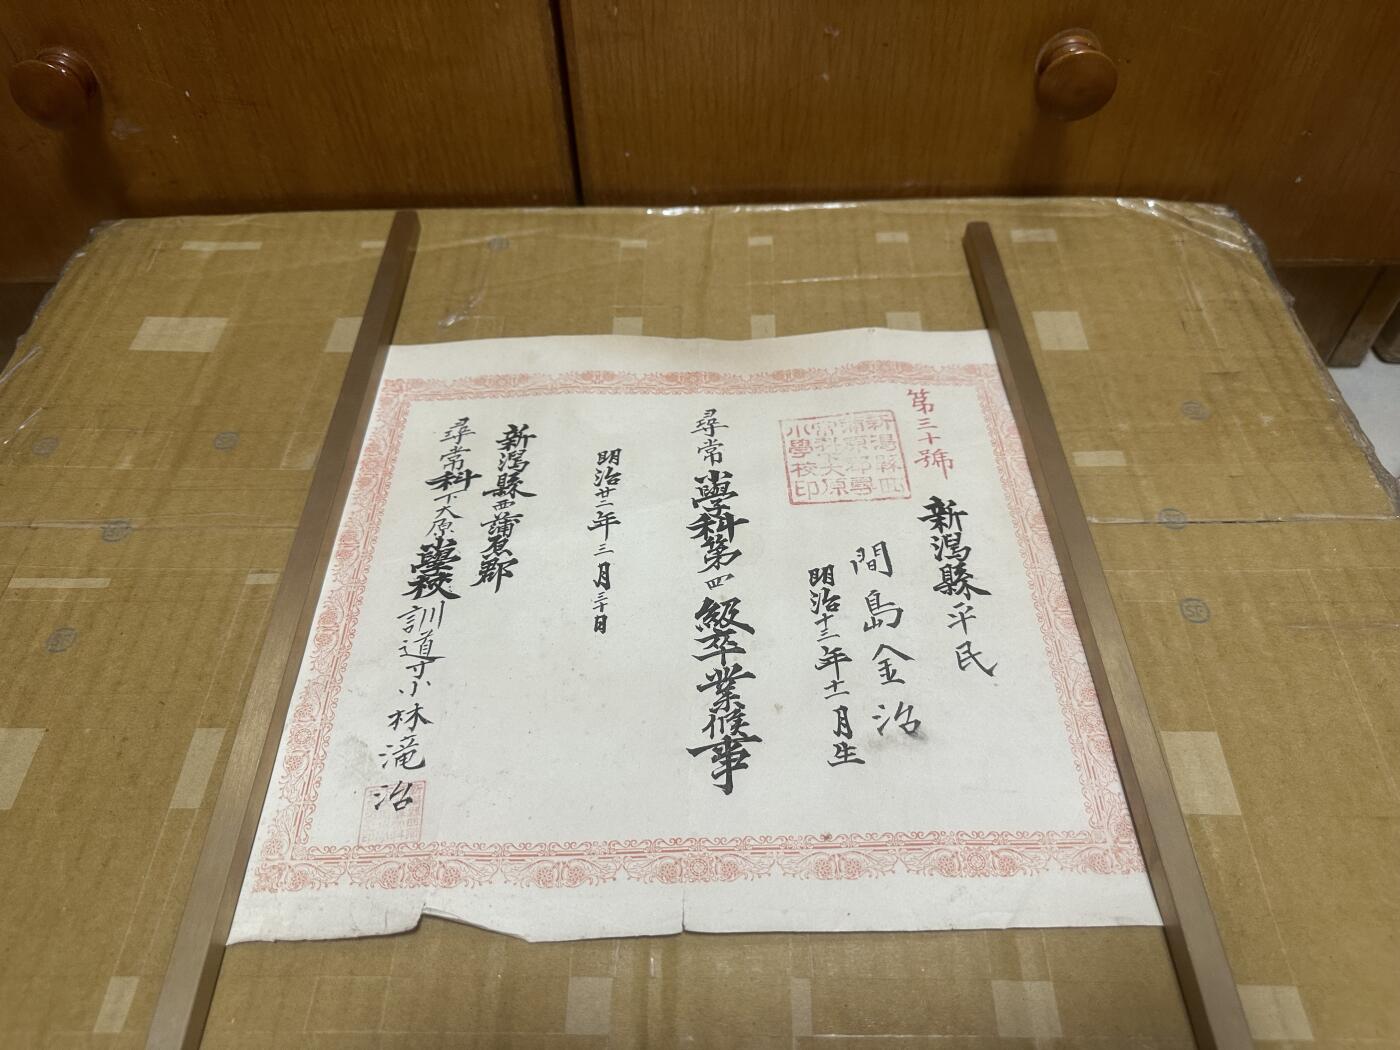 第三十號
新潟縣平民
間島金治
明治十三年十一月生
新潟縣西
蒲原郡尋
常科下大原
小學校印
尋常小學科第四級卒業候事
明治廿二年三月三十日
新潟縣西蒲原郡
尋常科下大原小學校訓導小林滝治